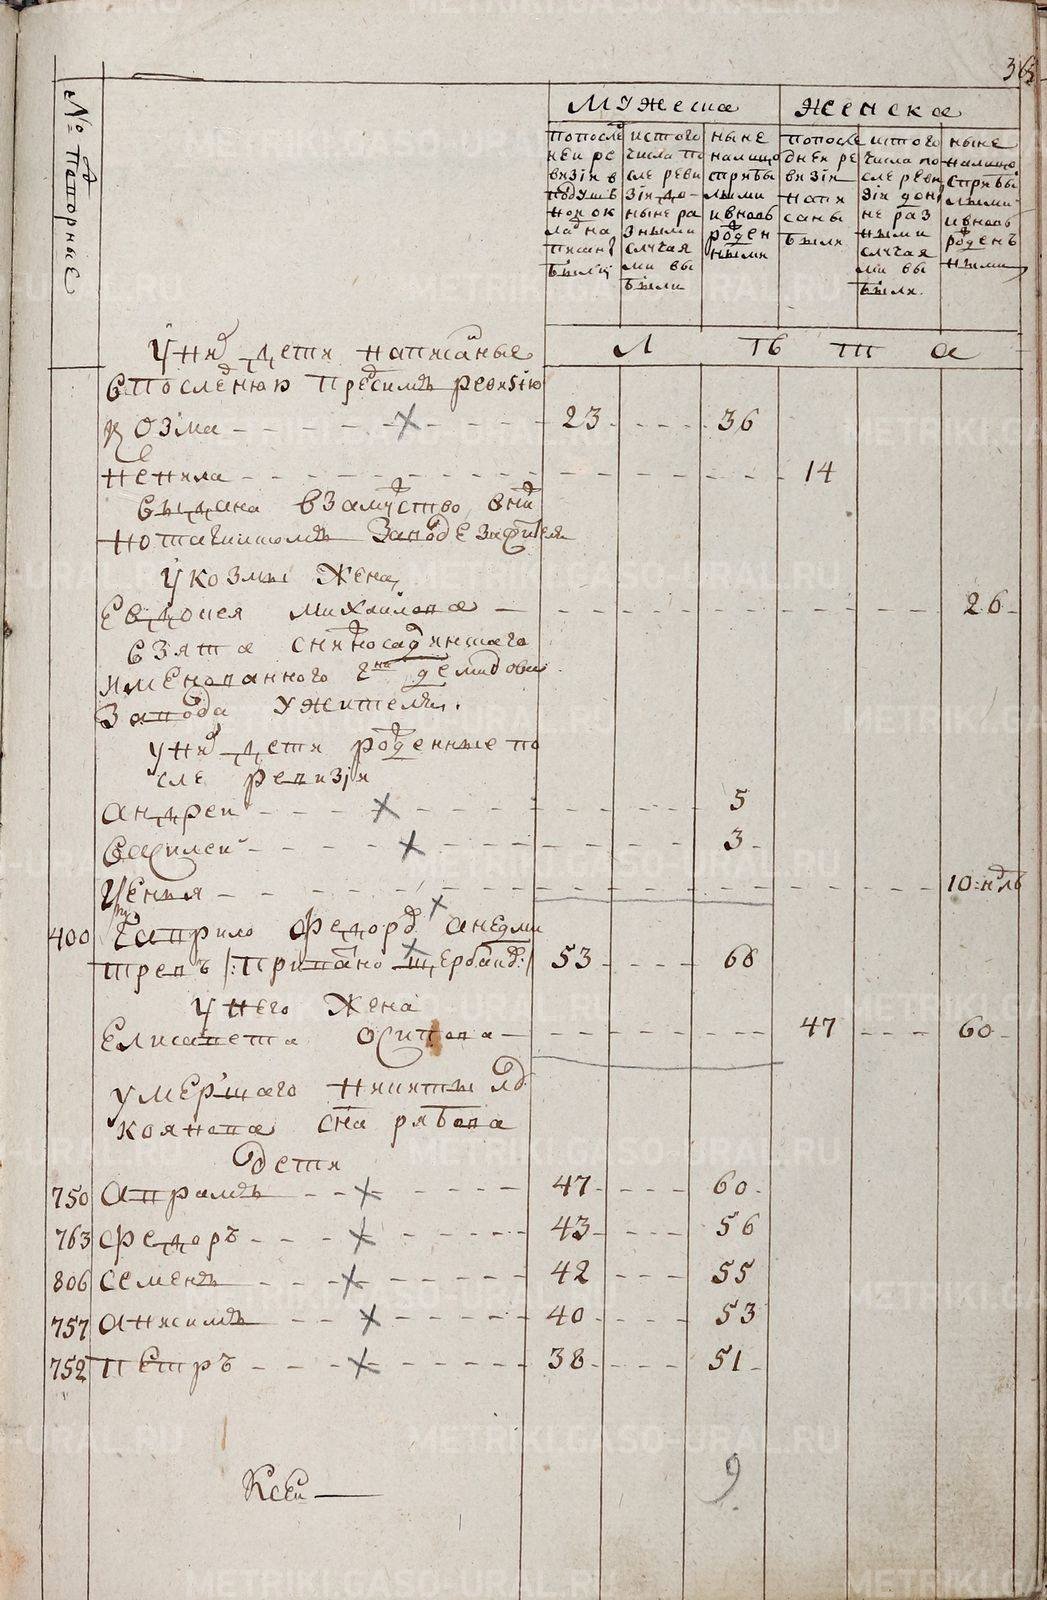 363
№ повторные
мужеска
женска
попослѣ
ней ре
визіи в
подуш
ной ок
лад на
писан
были
истого
числа по
сле реви
зіи до
ныне ра
зными
случая
ми вы
были
ныне
налицо
сприбы
лыми
ивновь
рожден
ными
попосле
дней ре
визіи
напи
саны
были
истого
числа по
сле реви
зіи до ны
не раз
ными
случая
ми вы
были.
ныне
налицо
сприбы
лыми
ивновь
рожденъ
ными
Л ѣ т а
У них дети написанные
впоследнюю пред симъ ревизію
Козма 23 36
Ненила 14
выдана взамуство вних
нотагильскомъ заводе зажителя
У козмы жена
Евдокея михаилова 26
взята снижносалдинского
имянованного гна демидова
завода ужителя.
у них дети рожденные по
сле ревизіи
андреи 5
василеи 3
Ксения 10: нѣдль
400 Гаврило федоров анедми
тревъ /: припсано щербаков :/ 53 68
У него жена
Елисавета осипова 47 60
умершаго никиты
сна рябова
дети
750 аврамъ 47 60
763 федоръ 43 56
806 семенъ 42 55
757 анисимъ 40 53
752 петръ 38 51
9
METRIKI.GASO-URAL.RU